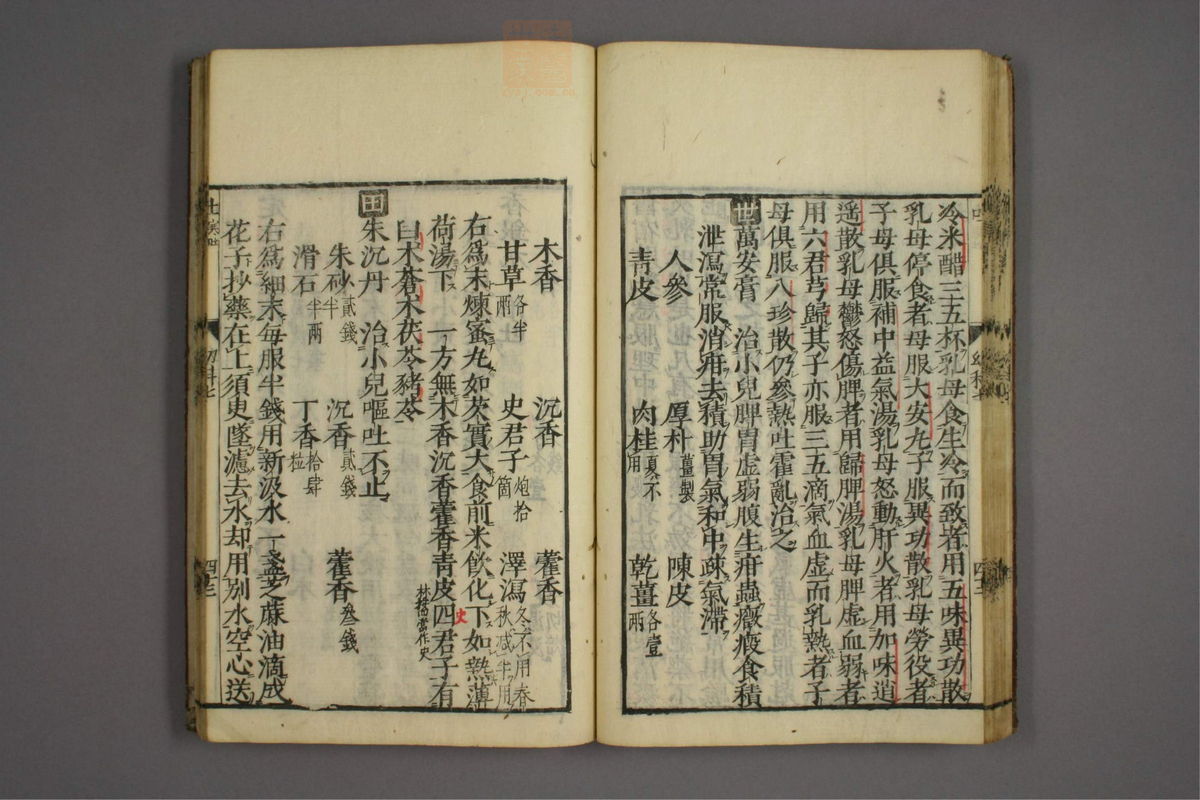 冷米醋三五杯乳母食生冷而致者用五味異功散
乳母停食者母服大安丸子服異功散乳母勞役者
子母俱服補中益氣湯乳母怒動肝火者用加味逍
遥散乳母鬱怒傷脾者用歸脾湯乳母脾虛血弱者
用六君芎歸其子亦服三五滴氣血虛而乳熱者子
母俱服八珍散仍參熱吐霍亂治之
世萬安膏 治小兒脾胃虛弱腹生疳蟲癥瘕食積
泄瀉常服消疳去積助胃氣和中疎氣滯
人參 厚朴薑製 陳皮
靑皮 肉桂夏不用 乾薑各壹兩
木香 沉香 藿香
甘草各半兩 史君子炮拾箇 澤瀉冬不用春秋减半用
右爲末煉蜜丸如芡實大食前米飲化下如熱薄
荷湯下 一方無木香沉香藿香靑皮四君子有
史
林擋當作史
白木蒼木茯苓豬苓
田朱沉丹 治小兒嘔吐不止
朱砂貳錢半 沉香貳錢 藿香叄錢
滑石半兩 丁香拾肆粒
右爲細末每服半錢用新汲水一盞芝蔴油滴成
花子抄藥在上須臾墜濾去水却用別水空心送
幼科七
四十二